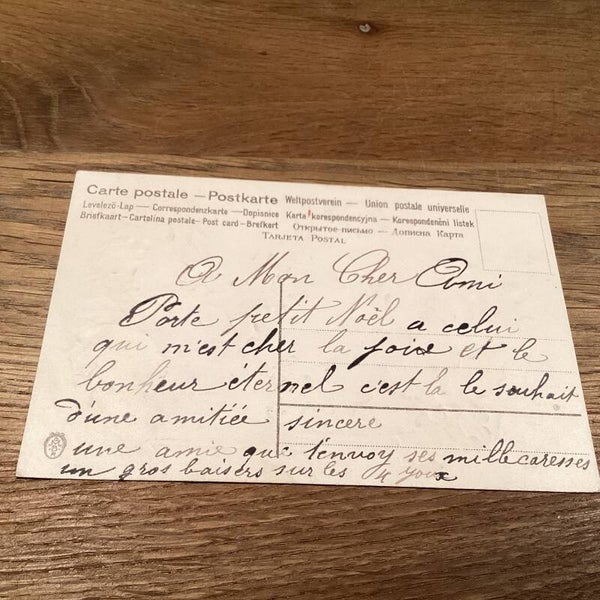 Carte postale — Postkarte Weltpostverein — Union postale universelle
Levelező-Lap — Correspondenzkarte — Dopisnice Karta korespondencyjna — Korespondenční lístek
Briefkaart — Cartolina postale — Post card — Brefkort Открытое письмо — Дописна Карта
Tarjeta Postal
A Mon Cher Ami
Porte petit Noël a celui
qui m'est cher la joix et le
bonheur éternel c'est la le souhait
d'une amitiée sincere
une amie que t'envoy ses mille caresses
un gros baisers sur les 4 yoix